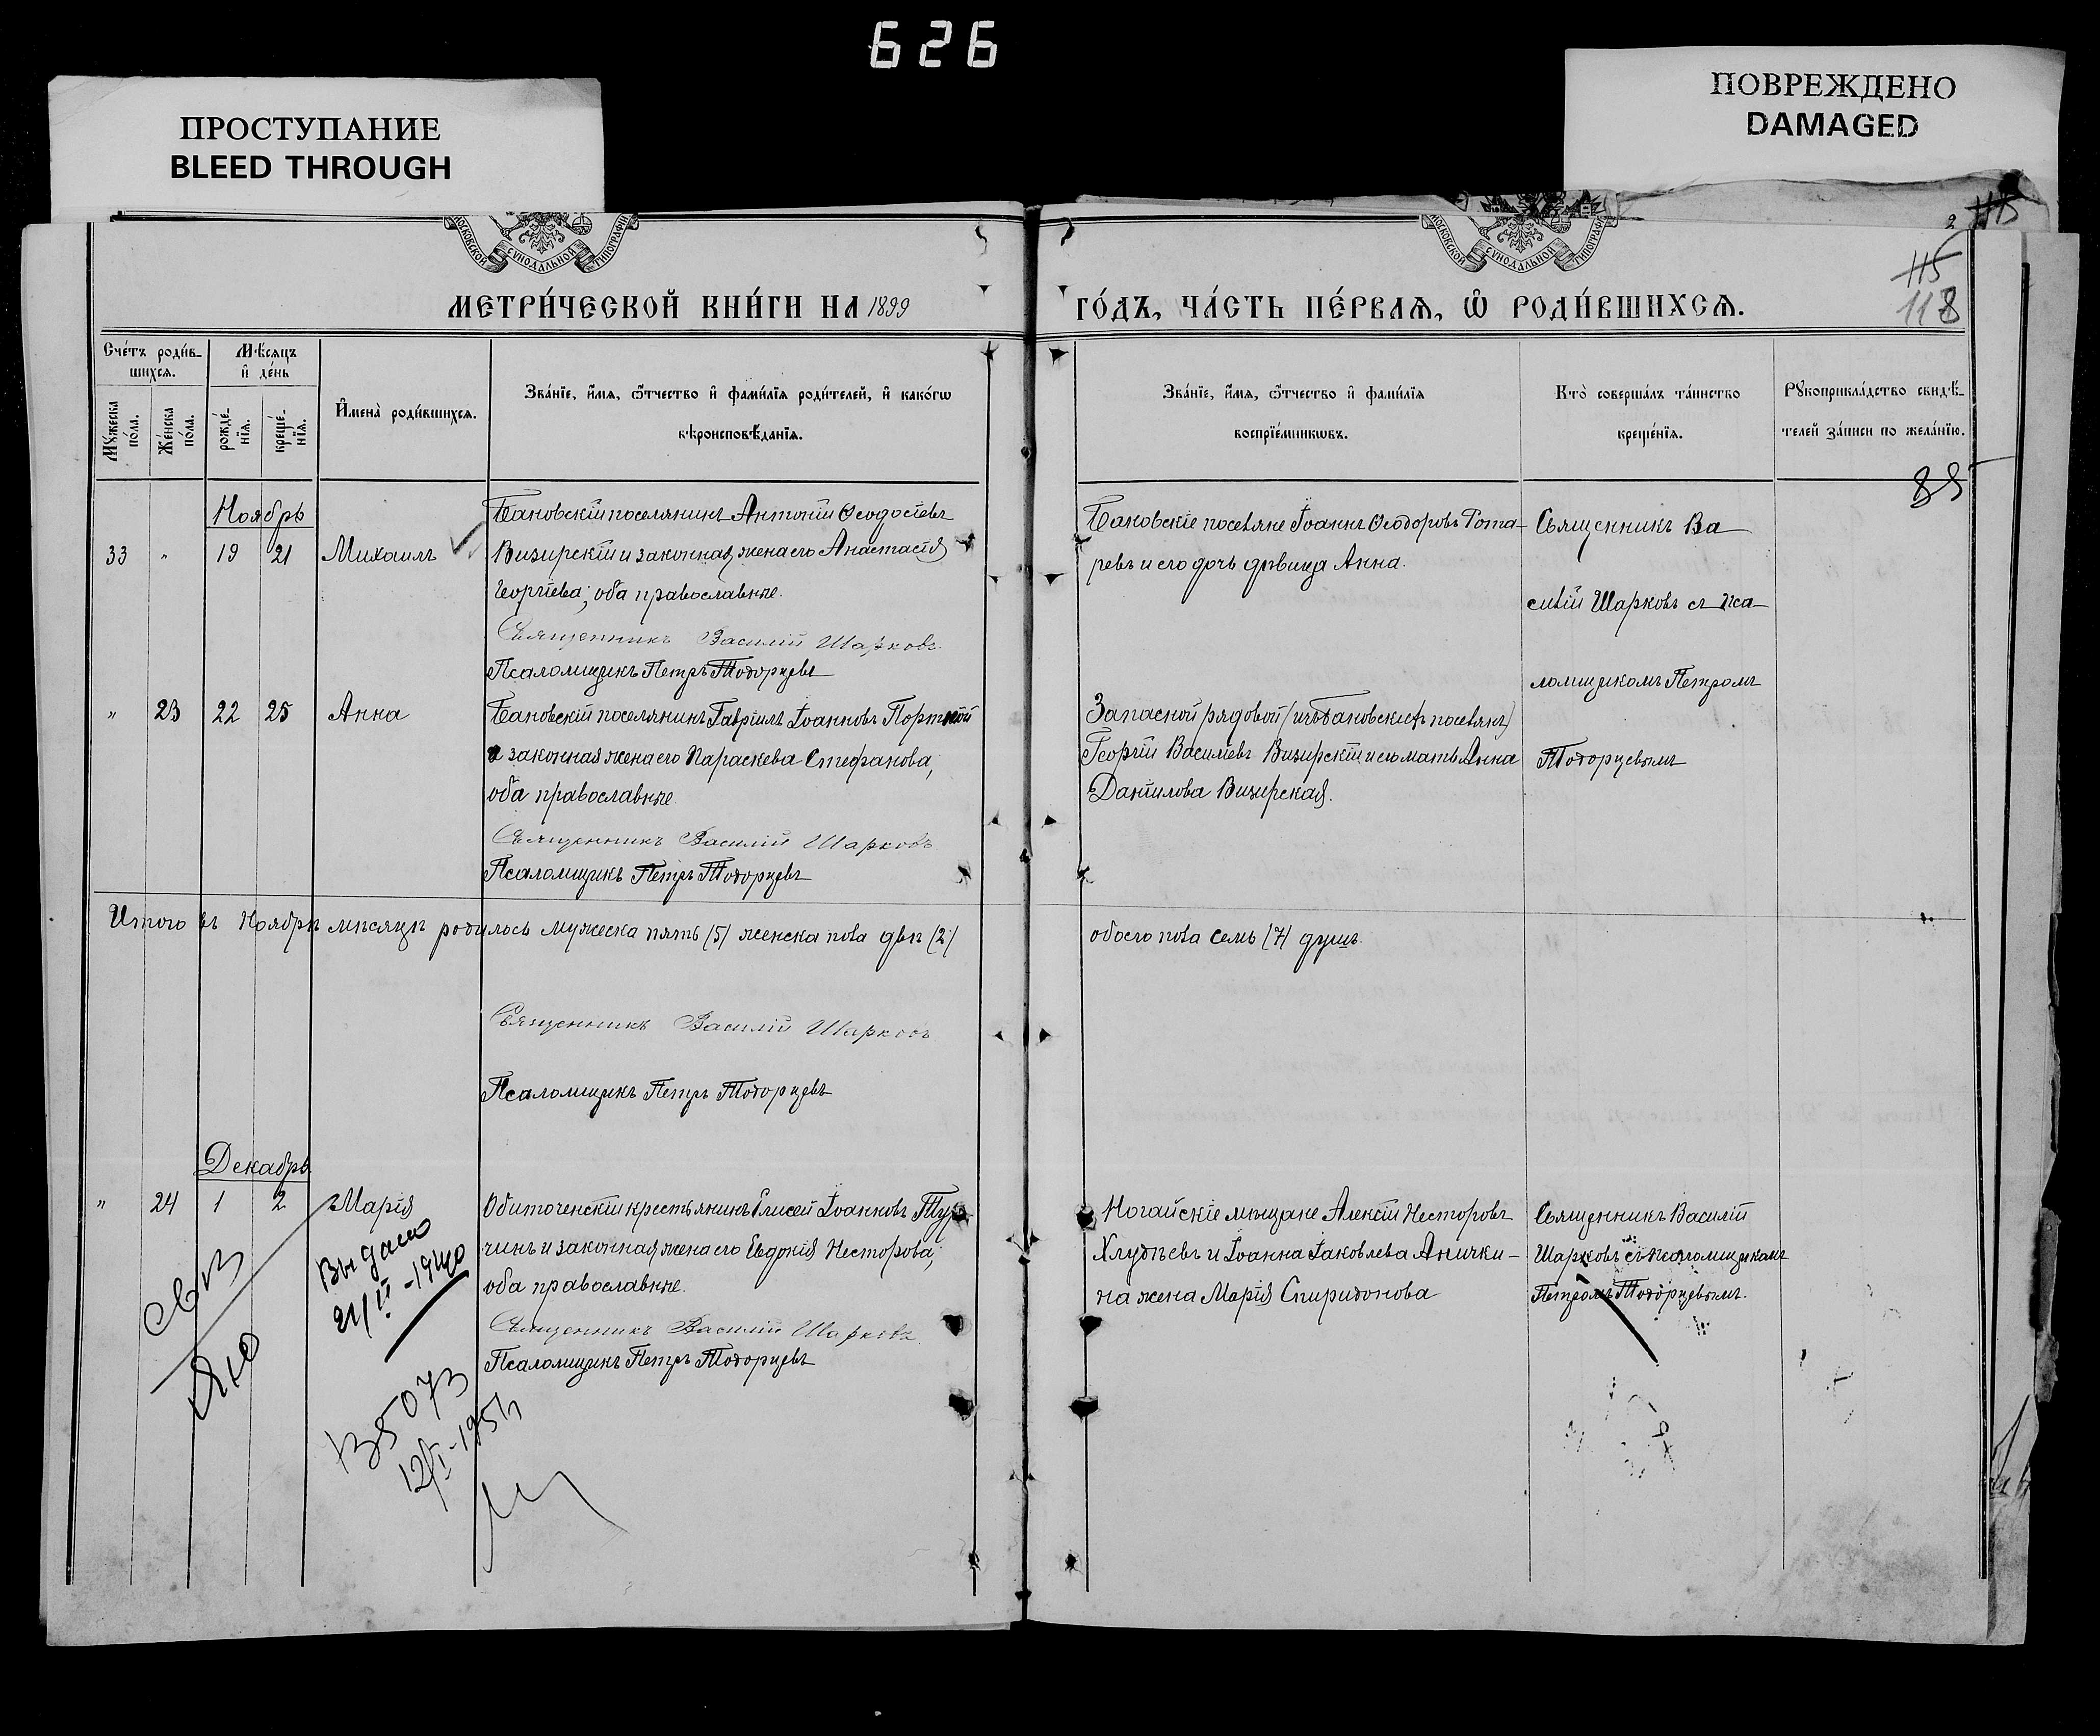 626
ПРОСТУПАНИЕ
BLEED THROUGH
ПОВРЕЖДЕНО
DAMAGED
МОСКОВСКОЙ СѴНОДАЛЬНОЙ ТИПОГРАФІИ
МОСКОВСКОЙ СѴНОДАЛЬНОЙ ТИПОГРАФІИ
2 115
115
118
МЕТРИ́ЧЕСКОЙ КНИ́ГИ НА 1899
ГО́ДЪ, ЧА́СТЬ ПЕ́РВАѦ, Ѡ҆ РОДИ́ВШИХСѦ.
Сче́тъ роди́в-
шихсѧ.
Мꙋ́жеска по́ла.
Же́нска по́ла.
Мѣ́сѧцъ
и҆ де́нь
рожде́-нїѧ.
креще́-нїѧ.
И҆мена̀ роди́вшихсѧ.
Зва́нїе, и҆́мѧ, ѻ҆́тчество и҆ фами́лїѧ роди́телей, и҆ како́гѡ
вѣроисповѣ́данїѧ.
Зва́нїе, и҆́мѧ, ѻ҆́тчество и҆ фами́лїѧ
воспрїе́мникѡвъ.
Кто̀ соверша́лъ та́инство
креще́нїѧ.
Рꙋкоприкла́дство свидѣ́-
телей за́писи по жела́нїю.
85
Ноябрь
33 " 19 21 Михаилъ
Бановскій поселянинъ Антоній Ѳеодосіевъ
Визирскій и законная жена его Анастасія
Георгіева, оба православные.
Священникъ Василій Шарковъ.
Псаломщикъ Петръ Тодорцевъ
Бановскіе поселяне Іоаннъ Ѳеодоровъ Рота-
ревъ и его дочь дѣвица Анна.
Священникъ Ва
силій Шарковъ съ пса-
ломщикомъ Петромъ
Тодорцевымъ
" 23 22 25 Анна
Бановскій поселянинъ Гавріилъ Іоанновъ Портной
и законная жена его Параскева Стефанова,
оба православные.
Священникъ Василій Шарковъ
Псаломщикъ Петръ Тодорцевъ
Запасной рядовой (изъ Бановскихъ поселянъ)
Георгій Василіевъ Визирскій и его мать Анна
Даніилова Визирская.
Итого въ Ноябрѣ мѣсяцѣ родилось мужеска пять (5) женска пола двѣ (2)
обоего пола семь (7) душъ.
Священникъ Василій Шарковъ
Псаломщикъ Петръ Тодорцевъ
Декабрь
" 24 1 2 Марія
Обиточенскій крестьянинъ Елисей Іоанновъ Тур-
чинъ и законная жена его Евдокія Несторова,
оба православные.
Священникъ Василій Шарковъ.
Псаломщикъ Петръ Тодорцевъ
Ногайскіе мѣщане Алексій Несторовъ
Хлудѣевъ и Іоанна Іаковлева Анички-
на жена Марія Спиридонова
Священникъ Василій
Шарковъ съ псаломщикомъ
Петромъ Тодорцевымъ.
Выдано
21/II-1940
135073
12/I-1951